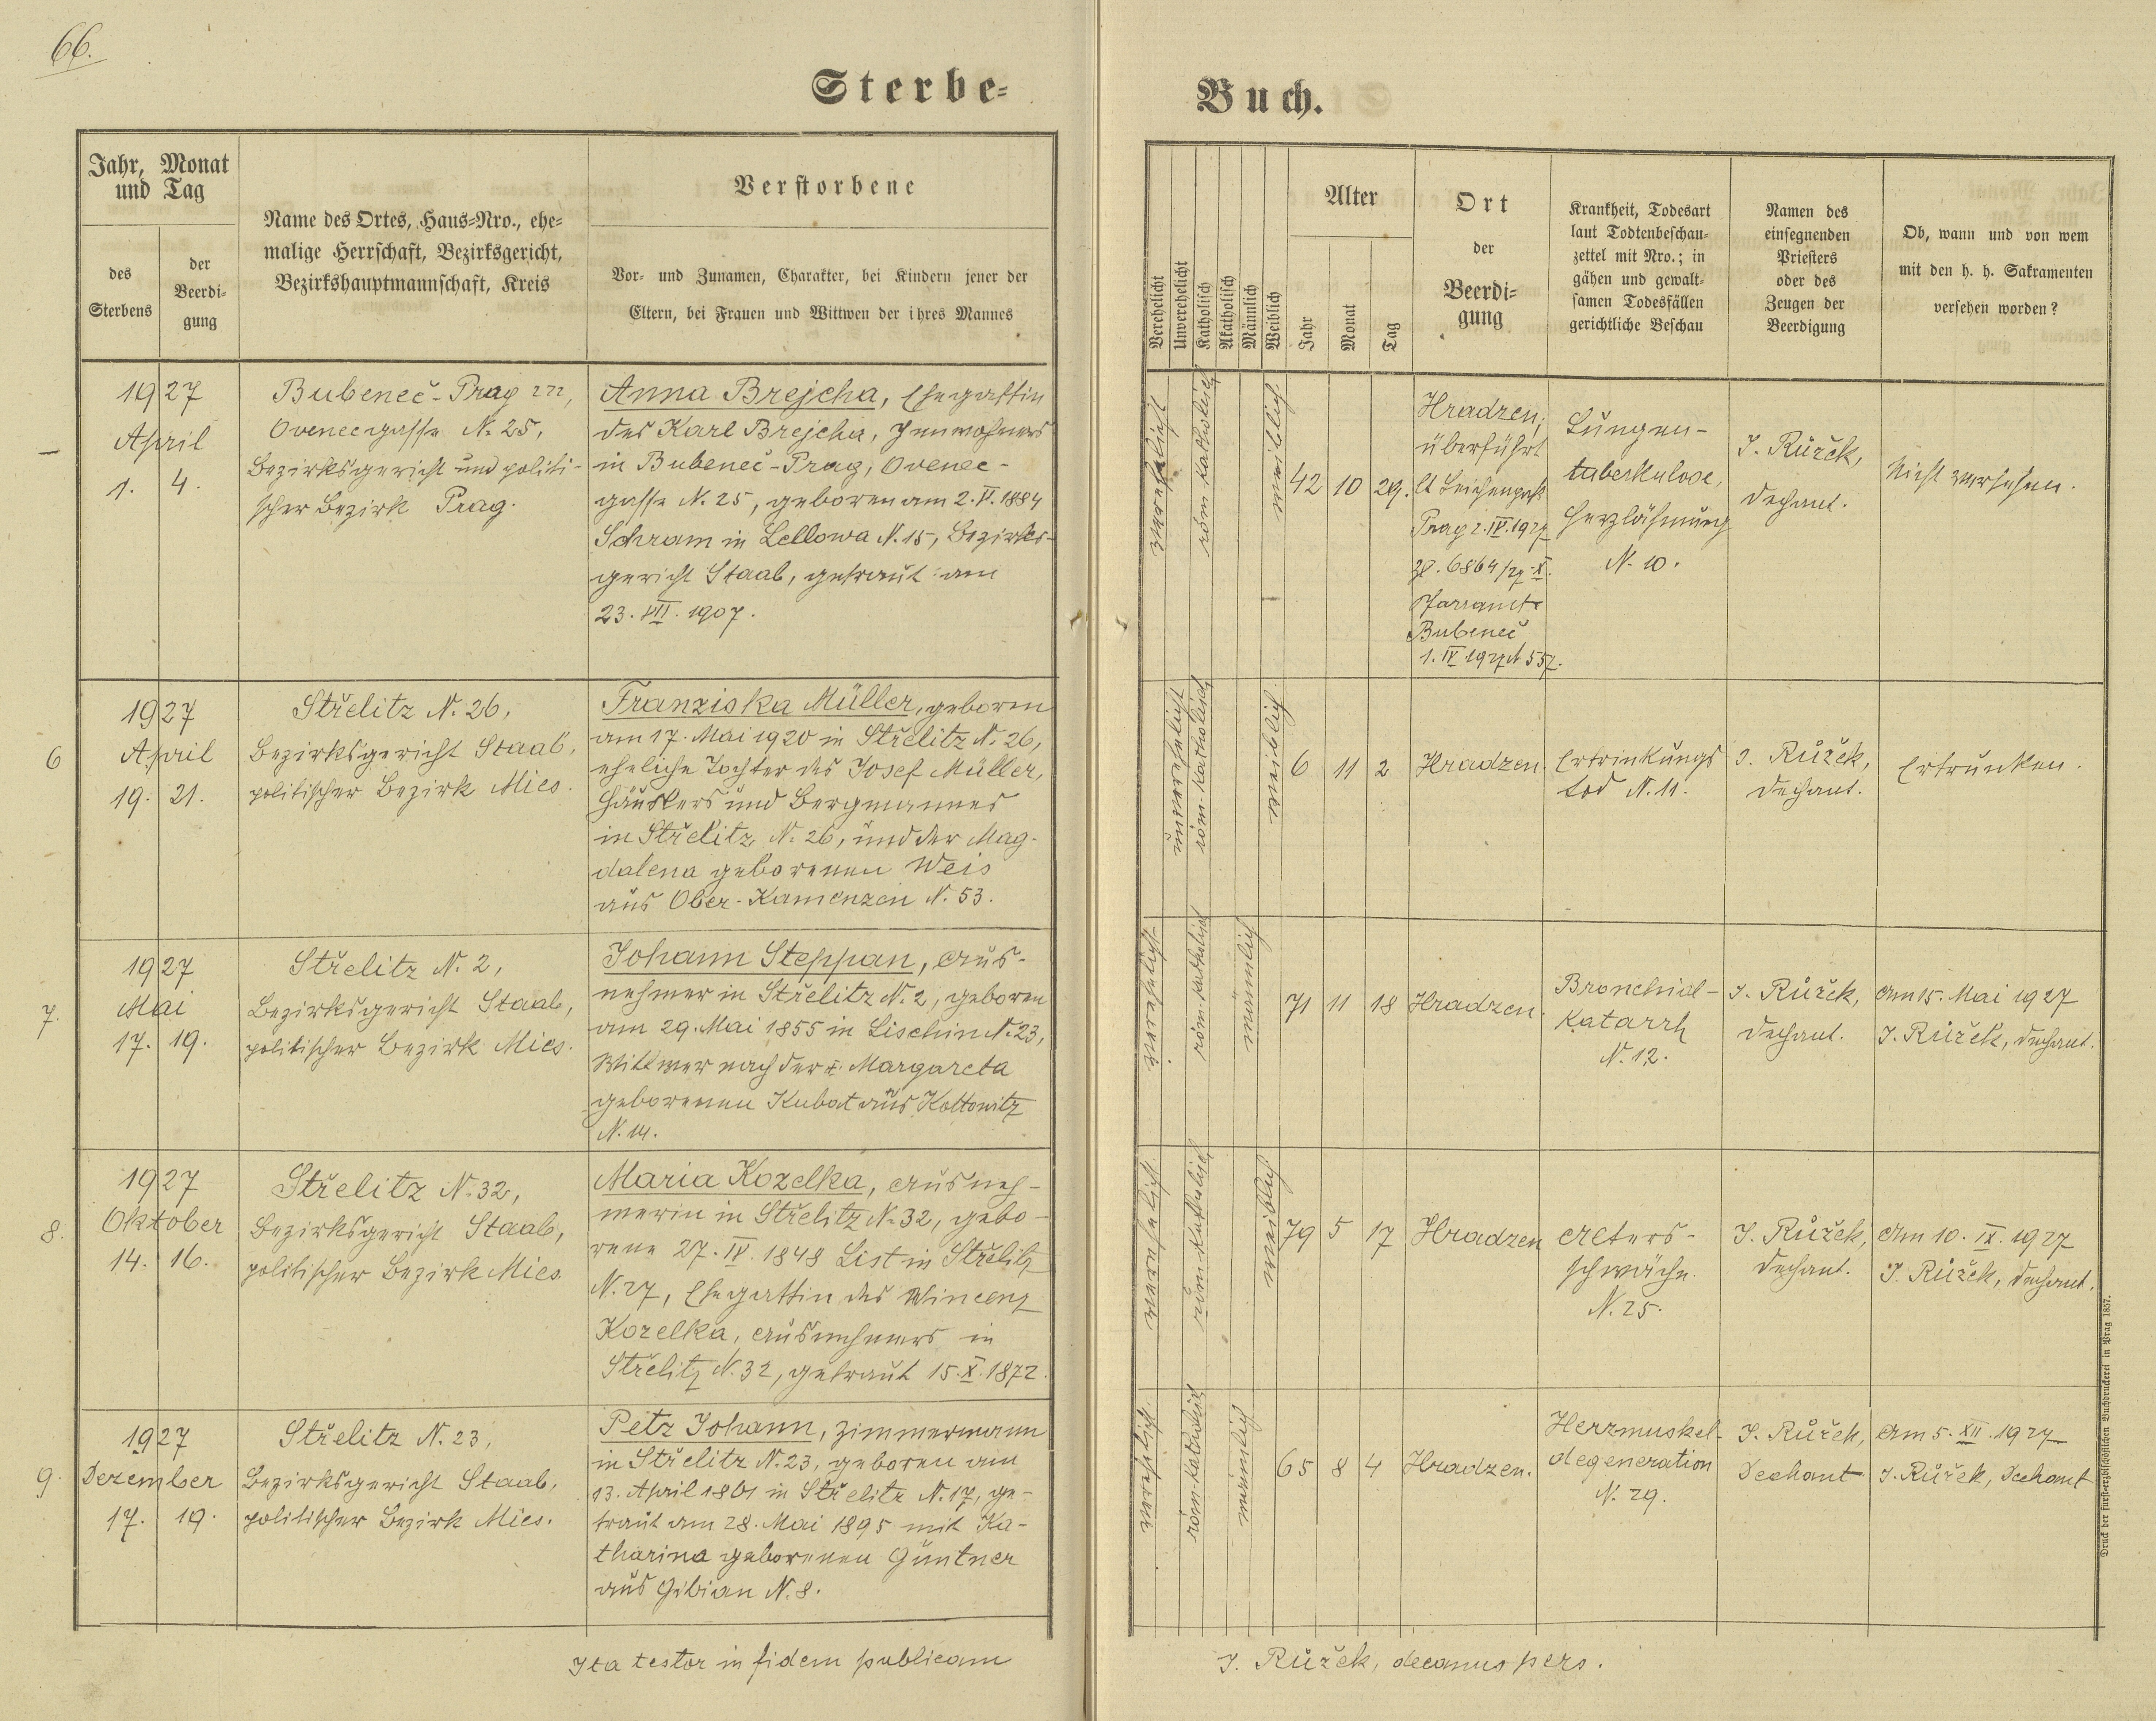 66.
Sterbe-
Buch.
Jahr, Monat
und Tag
des
Sterbens
der
Beerdi-
gung
Name des Ortes, Haus-Nro., ehe-
malige Herrschaft, Bezirksgericht,
Bezirkshauptmannschaft, Kreis
Verstorbene
Vor- und Zunamen, Charakter, bei Kindern jener der
Eltern, bei Frauen und Wittwen der ihres Mannes
Verehelicht
Unverehelicht
Katholisch
Akatholisch
Männlich
Weiblich
Alter
Jahr
Monat
Tag
Ort
der
Beerdi-
gung
Krankheit, Todesart
laut Todtenbeschau-
zettel mit Nro.; in
gähen und gewalt-
samen Todesfällen
gerichtliche Beschau
Namen des
einsegnenden
Priesters
oder des
Zeugen der
Beerdigung
Ob, wann und von wem
mit den h. h. Sakramenten
versehen worden?
–
1927
April
1. 4.
Bubeneč - Prag
Ovenecgasse N. 25,
Bezirksgericht und politi-
scher Bezirk Prag.
Anna Brejcha, Ehegattin
des Karl Brejcha, Inwohners
in Bubeneč - Prag, Ovenec-
gasse N. 25, geboren am 2. V. 1884
Schram in Lellowa N. 15, Bezirks-
gericht Staab, getraut am
23. VII. 1907.
verehelicht
röm. katholisch
weiblich
42 10 29.
Hradzen,
überführt
lt Leichenpaß
Prag 2. IV. 1927
Zl. 6864/27-X.
Pfarramt
Bubeneč
1. IV. 1927 N 557.
Lungen-
tuberkulose,
Herzlähmung
N. 10.
J. Růžek,
Dechant.
Nicht versehen.
6
1927
April
19. 21.
Střelitz N. 26,
Bezirksgericht Staab,
politischer Bezirk Mies.
Franziska Müller, geboren
am 17. Mai 1920 in Střelitz N. 26,
eheliche Tochter des Josef Müller,
Häuslers und Bergmannes
in Střelitz N. 26, und der Mag-
dalena geborenen Weis
aus Ober-Kamenzen N. 53.
unverehelicht
röm. katholisch
weiblich
6 11 2
Hradzen
Ertrinkungs
tod N. 11.
J. Růžek,
Dechant.
Ertrunken.
7.
1927
Mai
17. 19.
Střelitz N. 2,
Bezirksgericht Staab,
politischer Bezirk Mies.
Johann Steppan, Aus-
nehmer in Střelitz N. 2, geboren
am 29. Mai 1855 in Lischin N. 23,
Wittwer nach der Margareta
geborenen Kubat aus Kottowitz
N. 14.
verehelicht
röm. katholisch
männlich
71 11 18
Hradzen.
Bronchial-
Katarrh
N. 12.
J. Růžek,
Dechant.
Am 15. Mai 1927
J. Růžek, Dechant.
8.
1927
Oktober
14. 16.
Střelitz N. 32,
Bezirksgericht Staab,
politischer Bezirk Mies.
Maria Kozelka, Ausneh-
merin in Střelitz N. 32, gebo-
rene 27. IV. 1848 List in Střelitz
N. 27, Ehegattin des Wincenz
Kozelka, Ausnehmers in
Střelitz N. 32, getraut 15. X. 1872.
verehelicht
röm. katholisch
weiblich
79 5 17
Hradzen
Alters-
schwäche.
N. 25.
J. Růžek,
Dechant.
Am 10. IX. 1927
J. Růžek, Dechant.
9.
1927
Dezember
17. 19.
Střelitz N. 23,
Bezirksgericht Staab,
politischer Bezirk Mies.
Petz Johann, Zimmermann
in Střelitz N. 23, geboren am
13. April 1861 in Střelitz N. 17, ge-
traut am 28. Mai 1895 mit Ka-
tharina geborenen Güntner
aus Gibian N. 8.
verehelicht
röm. katholisch
männlich
65 8 4
Hradzen.
Herzmuskel-
degeneration
N. 29.
J. Růžek,
Dechant
Am 5. XII. 1927
J. Růžek, Dechant
Ita testor in fidem publicam
J. Růžek, decanus pers.
Druck der fürsterzbischöflichen Buchdruckerei in Prag 1857.